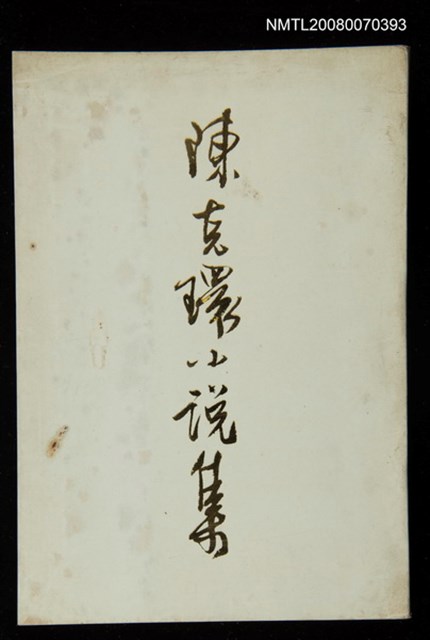 NMTL20080070393
陳克環小說集